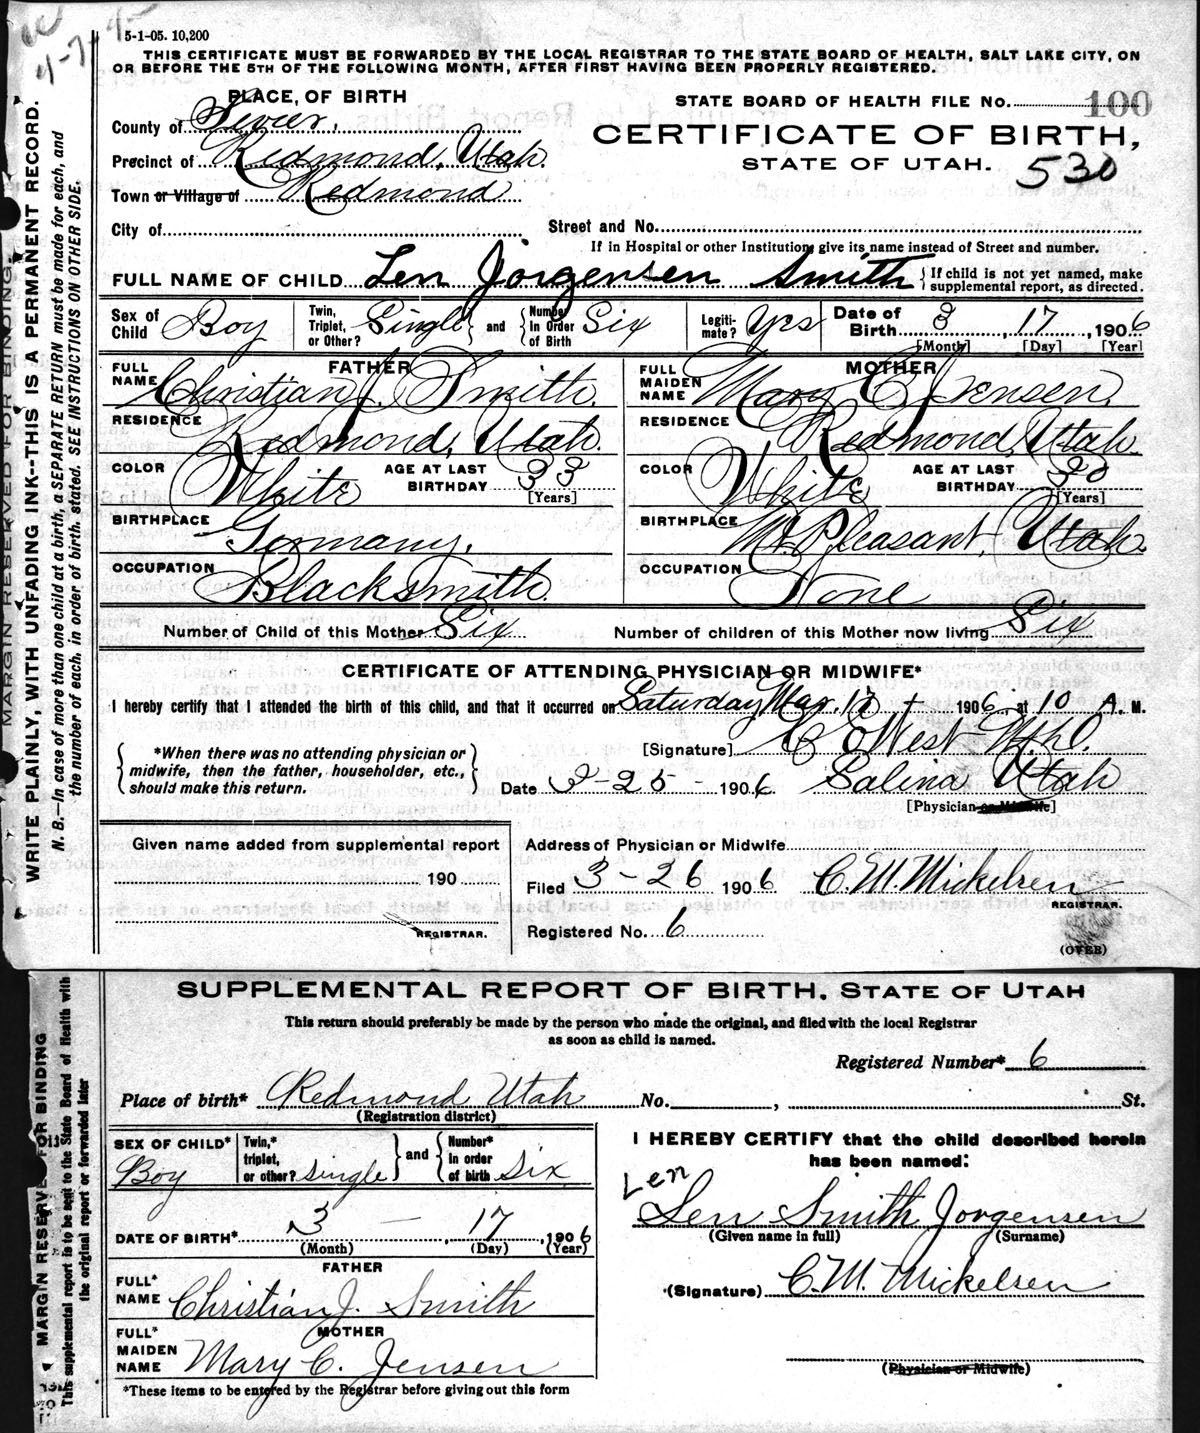 4-7-45
5-1-05. 10,200
THIS CERTIFICATE MUST BE FORWARDED BY THE LOCAL REGISTRAR TO THE STATE BOARD OF HEALTH, SALT LAKE CITY, ON
OR BEFORE THE 5TH OF THE FOLLOWING MONTH, AFTER FIRST HAVING BEEN PROPERLY REGISTERED.
PLACE, OF BIRTH
STATE BOARD OF HEALTH FILE No. 100
County of Sevier,
CERTIFICATE OF BIRTH,
Precinct of Redmond, Utah.
STATE OF UTAH. 530
Town or Village of Redmond
City of Street and No.
If in Hospital or other Institution, give its name instead of Street and number.
FULL NAME OF CHILD Len Jorgensen Smith { If child is not yet named, make
supplemental report, as directed.
Sex of Child Boy Twin, Triplet, or Other? Single and Number In Order of Birth Six Legitimate? Yes Date of Birth 3 17, 1906
[Month] [Day] [Year]
FATHER MOTHER
FULL NAME Christian J. Smith. FULL MAIDEN NAME Mary C. Jensen.
RESIDENCE Redmond, Utah. RESIDENCE Redmond, Utah.
COLOR White AGE AT LAST BIRTHDAY 33 [Years] COLOR White AGE AT LAST BIRTHDAY 30 [Years]
BIRTHPLACE Germany. BIRTHPLACE Mt. Pleasant, Utah.
OCCUPATION Blacksmith. OCCUPATION None
Number of Child of this Mother Six Number of children of this Mother now living Six
CERTIFICATE OF ATTENDING PHYSICIAN OR MIDWIFE*
I hereby certify that I attended the birth of this child, and that it occurred on Saturday Mar. 17 1906, at 10 A. M.
*When there was no attending physician or
midwife, then the father, householder, etc.,
should make this return.
[Signature] West M.D.
Date 3-25-1906 Salina Utah
[Physician or Midwife]
Given name added from supplemental report
190
REGISTRAR.
Address of Physician or Midwife
Filed 3-26 1906 C. M. Mickelsen
REGISTRAR.
Registered No. 6
(OVER)
MARGIN RESERVED FOR BINDING.
WRITE PLAINLY, WITH UNFADING INK--THIS IS A PERMANENT RECORD.
N. B.—In case of more than one child at a birth, a SEPARATE RETURN must be made for each, and
the number of each, in order of birth, stated. SEE INSTRUCTIONS ON OTHER SIDE.
SUPPLEMENTAL REPORT OF BIRTH. STATE OF UTAH
This return should preferably be made by the person who made the original, and filed with the local Registrar
as soon as child is named.
Registered Number* 6
Place of birth* Redmond Utah No. , St.
(Registration district)
SEX OF CHILD* Boy Twin,* triplet, or other? single and Number* in order of birth six
DATE OF BIRTH* 3 — 17, 1906
(Month) (Day) (Year)
FATHER
FULL* NAME Christian J. Smith
MOTHER
FULL* MAIDEN NAME Mary C. Jensen
*These items to be entered by the Registrar before giving out this form
I HEREBY CERTIFY that the child described herein
has been named:
Len
Len Smith Jorgensen
(Given name in full) (Surname)
(Signature) C. M. Mickelsen
(Physician or Midwife)
MARGIN RESERVE FOR BINDING
This supplemental report is to be sent to the State Board of Health with
the original report or forwarded later